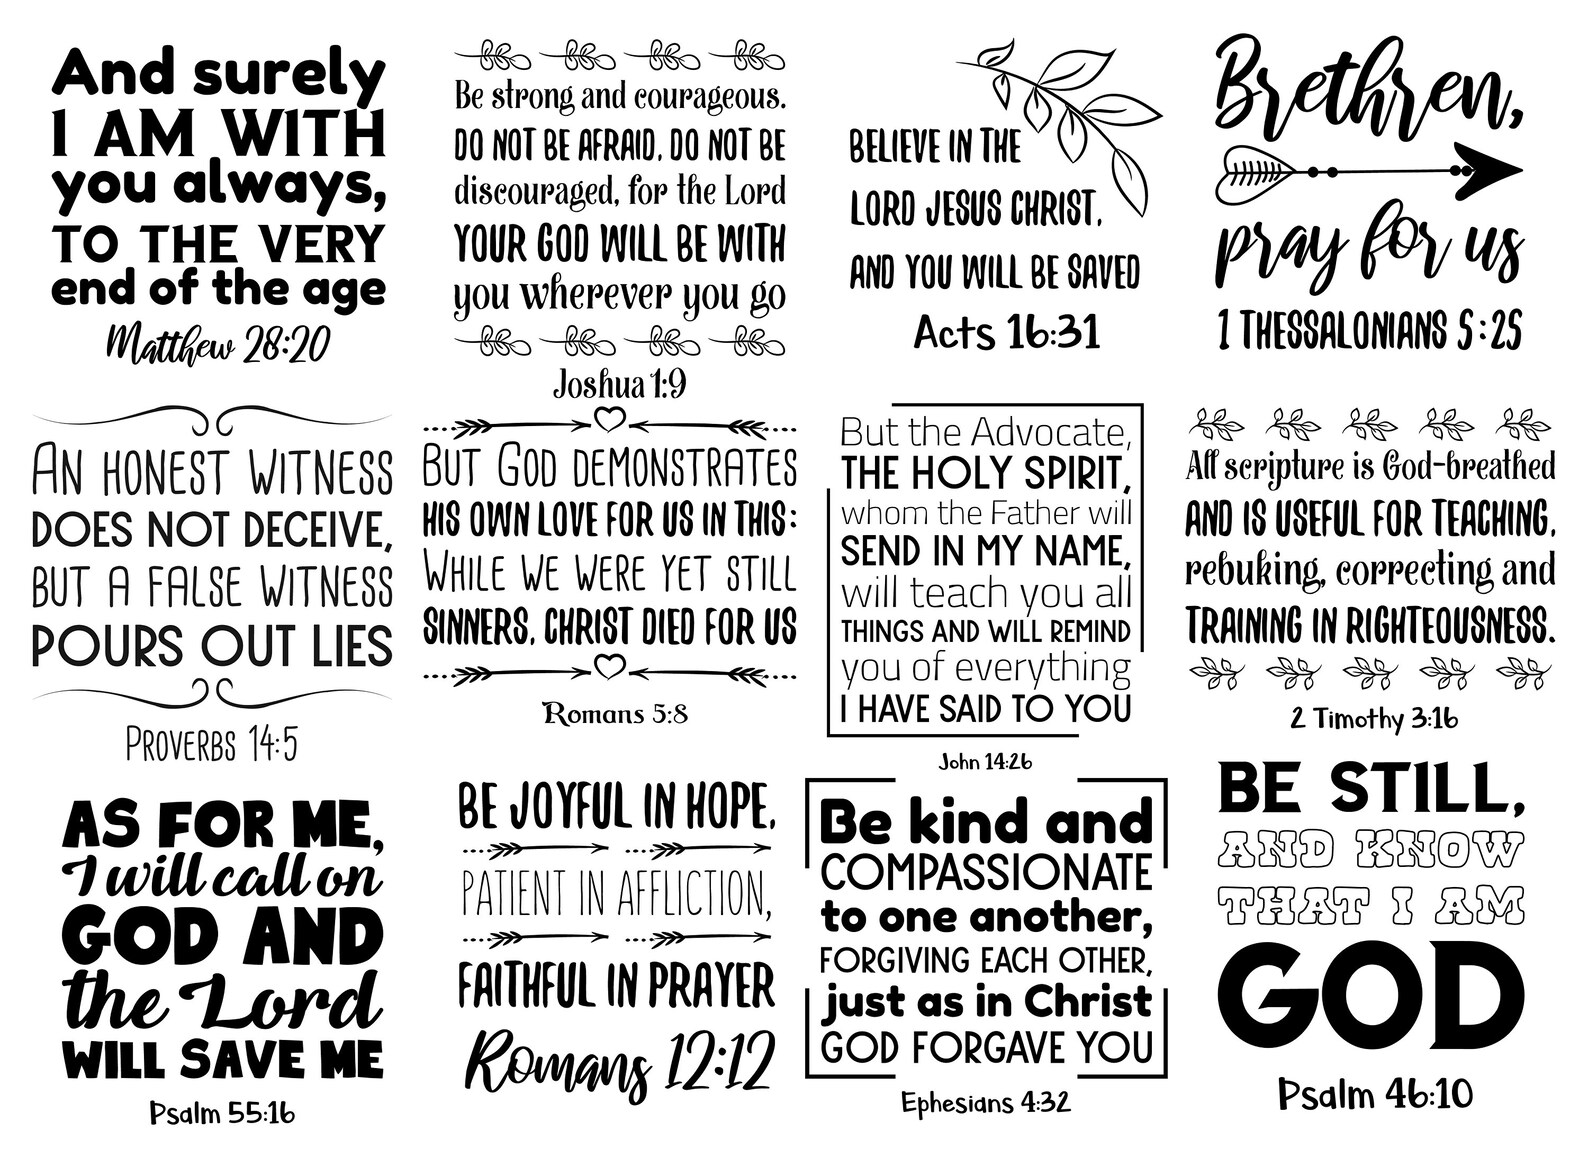 And surely
I AM WITH
you always,
TO THE VERY
end of the age
Matthew 28:20
Be strong and courageous.
DO NOT BE AFRAID, DO NOT BE
discouraged, for the Lord
YOUR GOD WILL BE WITH
you wherever you go
Joshua 1:9
BELIEVE IN THE
LORD JESUS CHRIST,
AND YOU WILL BE SAVED
Acts 16:31
Brethren,
pray for us
1 THESSALONIANS 5:25
AN HONEST WITNESS
DOES NOT DECEIVE,
BUT A FALSE WITNESS
POURS OUT LIES
PROVERBS 14:5
BUT GOD DEMONSTRATES
HIS OWN LOVE FOR US IN THIS:
WHILE WE WERE YET STILL
SINNERS, CHRIST DIED FOR US
Romans 5:8
But the Advocate,
THE HOLY SPIRIT,
whom the Father will
SEND IN MY NAME,
will teach you all
THINGS AND WILL REMIND
you of everything
I HAVE SAID TO YOU
John 14:26
All scripture is God-breathed
AND IS USEFUL FOR TEACHING,
rebuking, correcting and
TRAINING IN RIGHTEOUSNESS.
2 Timothy 3:16
AS FOR ME,
I will call on
GOD AND
the Lord
WILL SAVE ME
Psalm 55:16
BE JOYFUL IN HOPE,
PATIENT IN AFFLICTION,
FAITHFUL IN PRAYER
Romans 12:12
Be kind and
COMPASSIONATE
to one another,
FORGIVING EACH OTHER,
just as in Christ
GOD FORGAVE YOU
Ephesians 4:32
BE STILL,
AND KNOW
THAT I AM
GOD
Psalm 46:10